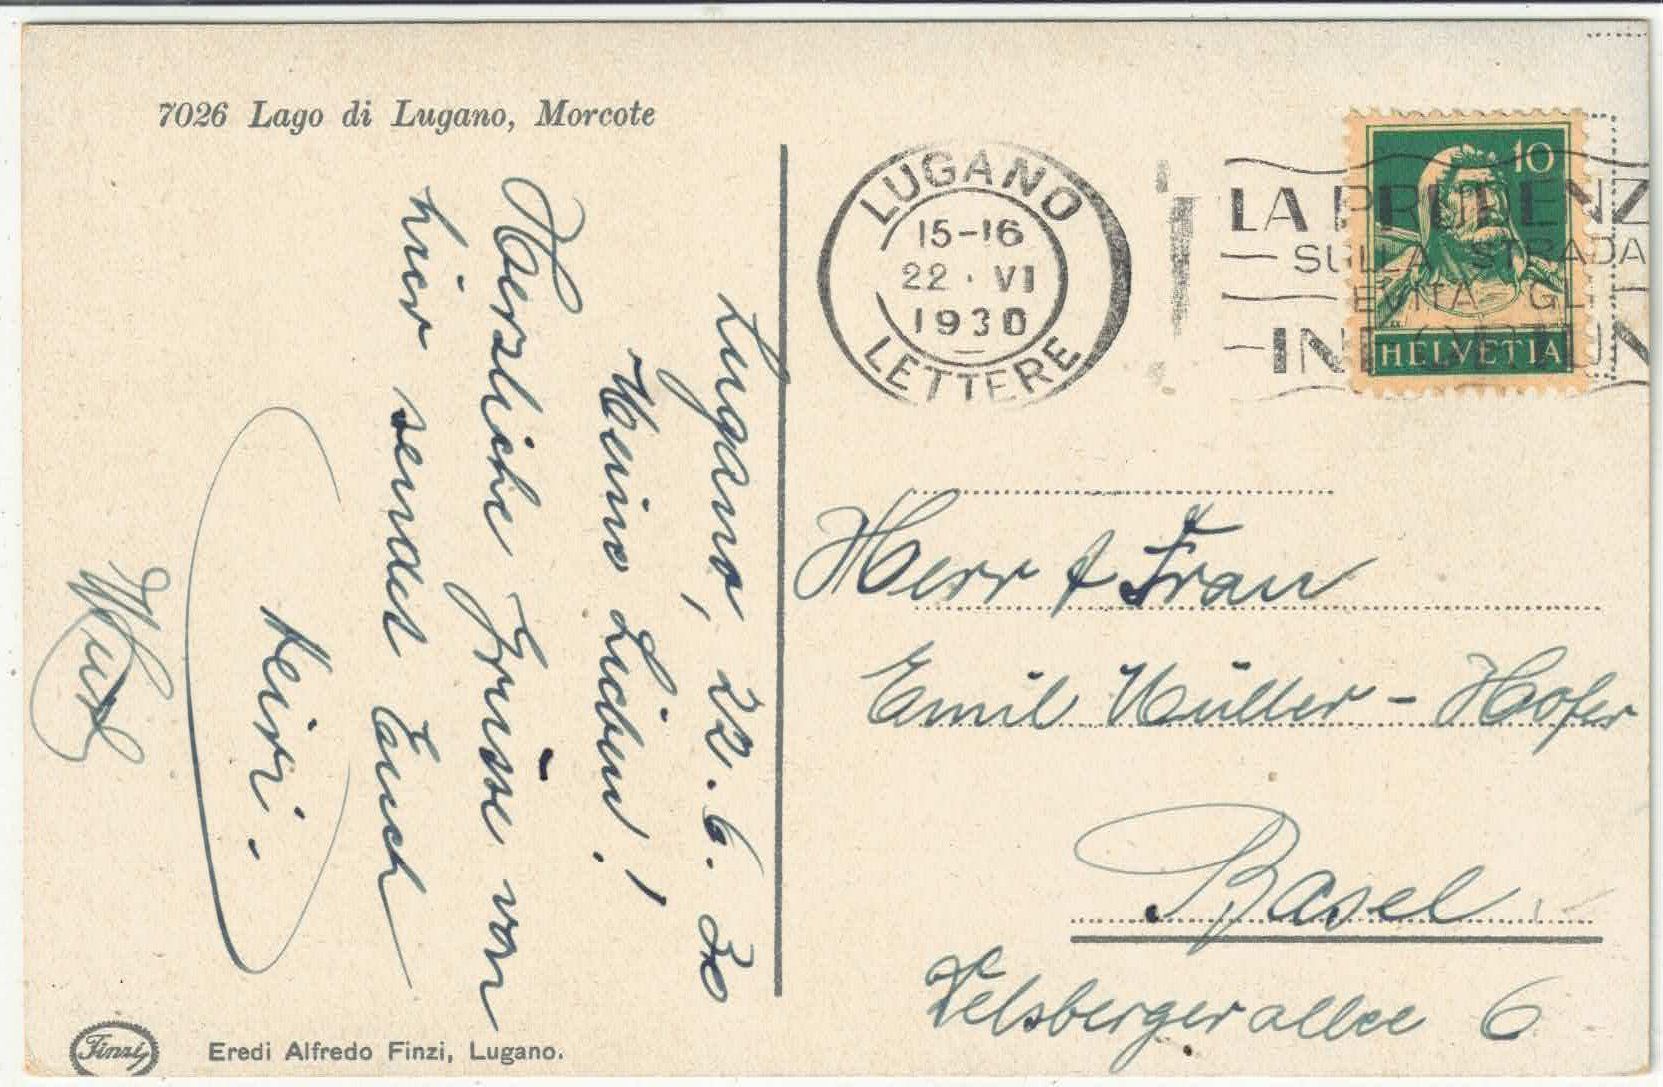 7026 Lago di Lugano, Morcote
Lugano, 22. 6. 30
Meine Lieben!
Herzliche Grüsse von
hier sendet Euch
Heiri.
LUGANO
15-16
22·VI
1930
LETTERE
LA PRUDENZ
SULLA STRADA
EVITA GLI
10
HELVETIA
Herr & Frau
Emil Müller-Hofer
Basel
Delsbergerallee 6
Finzi
Eredi Alfredo Finzi, Lugano.